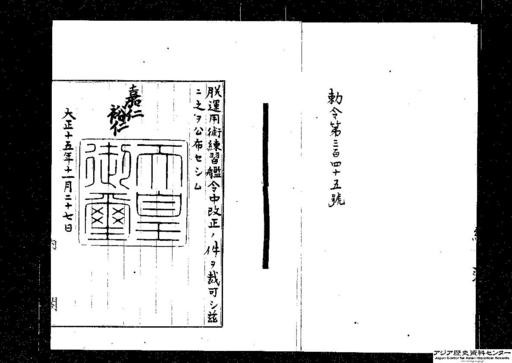 勅令第三百四十五號
朕運用術練習艦令中改正ノ件ヲ裁可シ茲
ニ之ヲ公布セシム
嘉仁
裕仁
天皇
御璽
大正十五年十一月二十七日
内閣
アジア歴史資料センター
Japan Center for Asian Historical Records